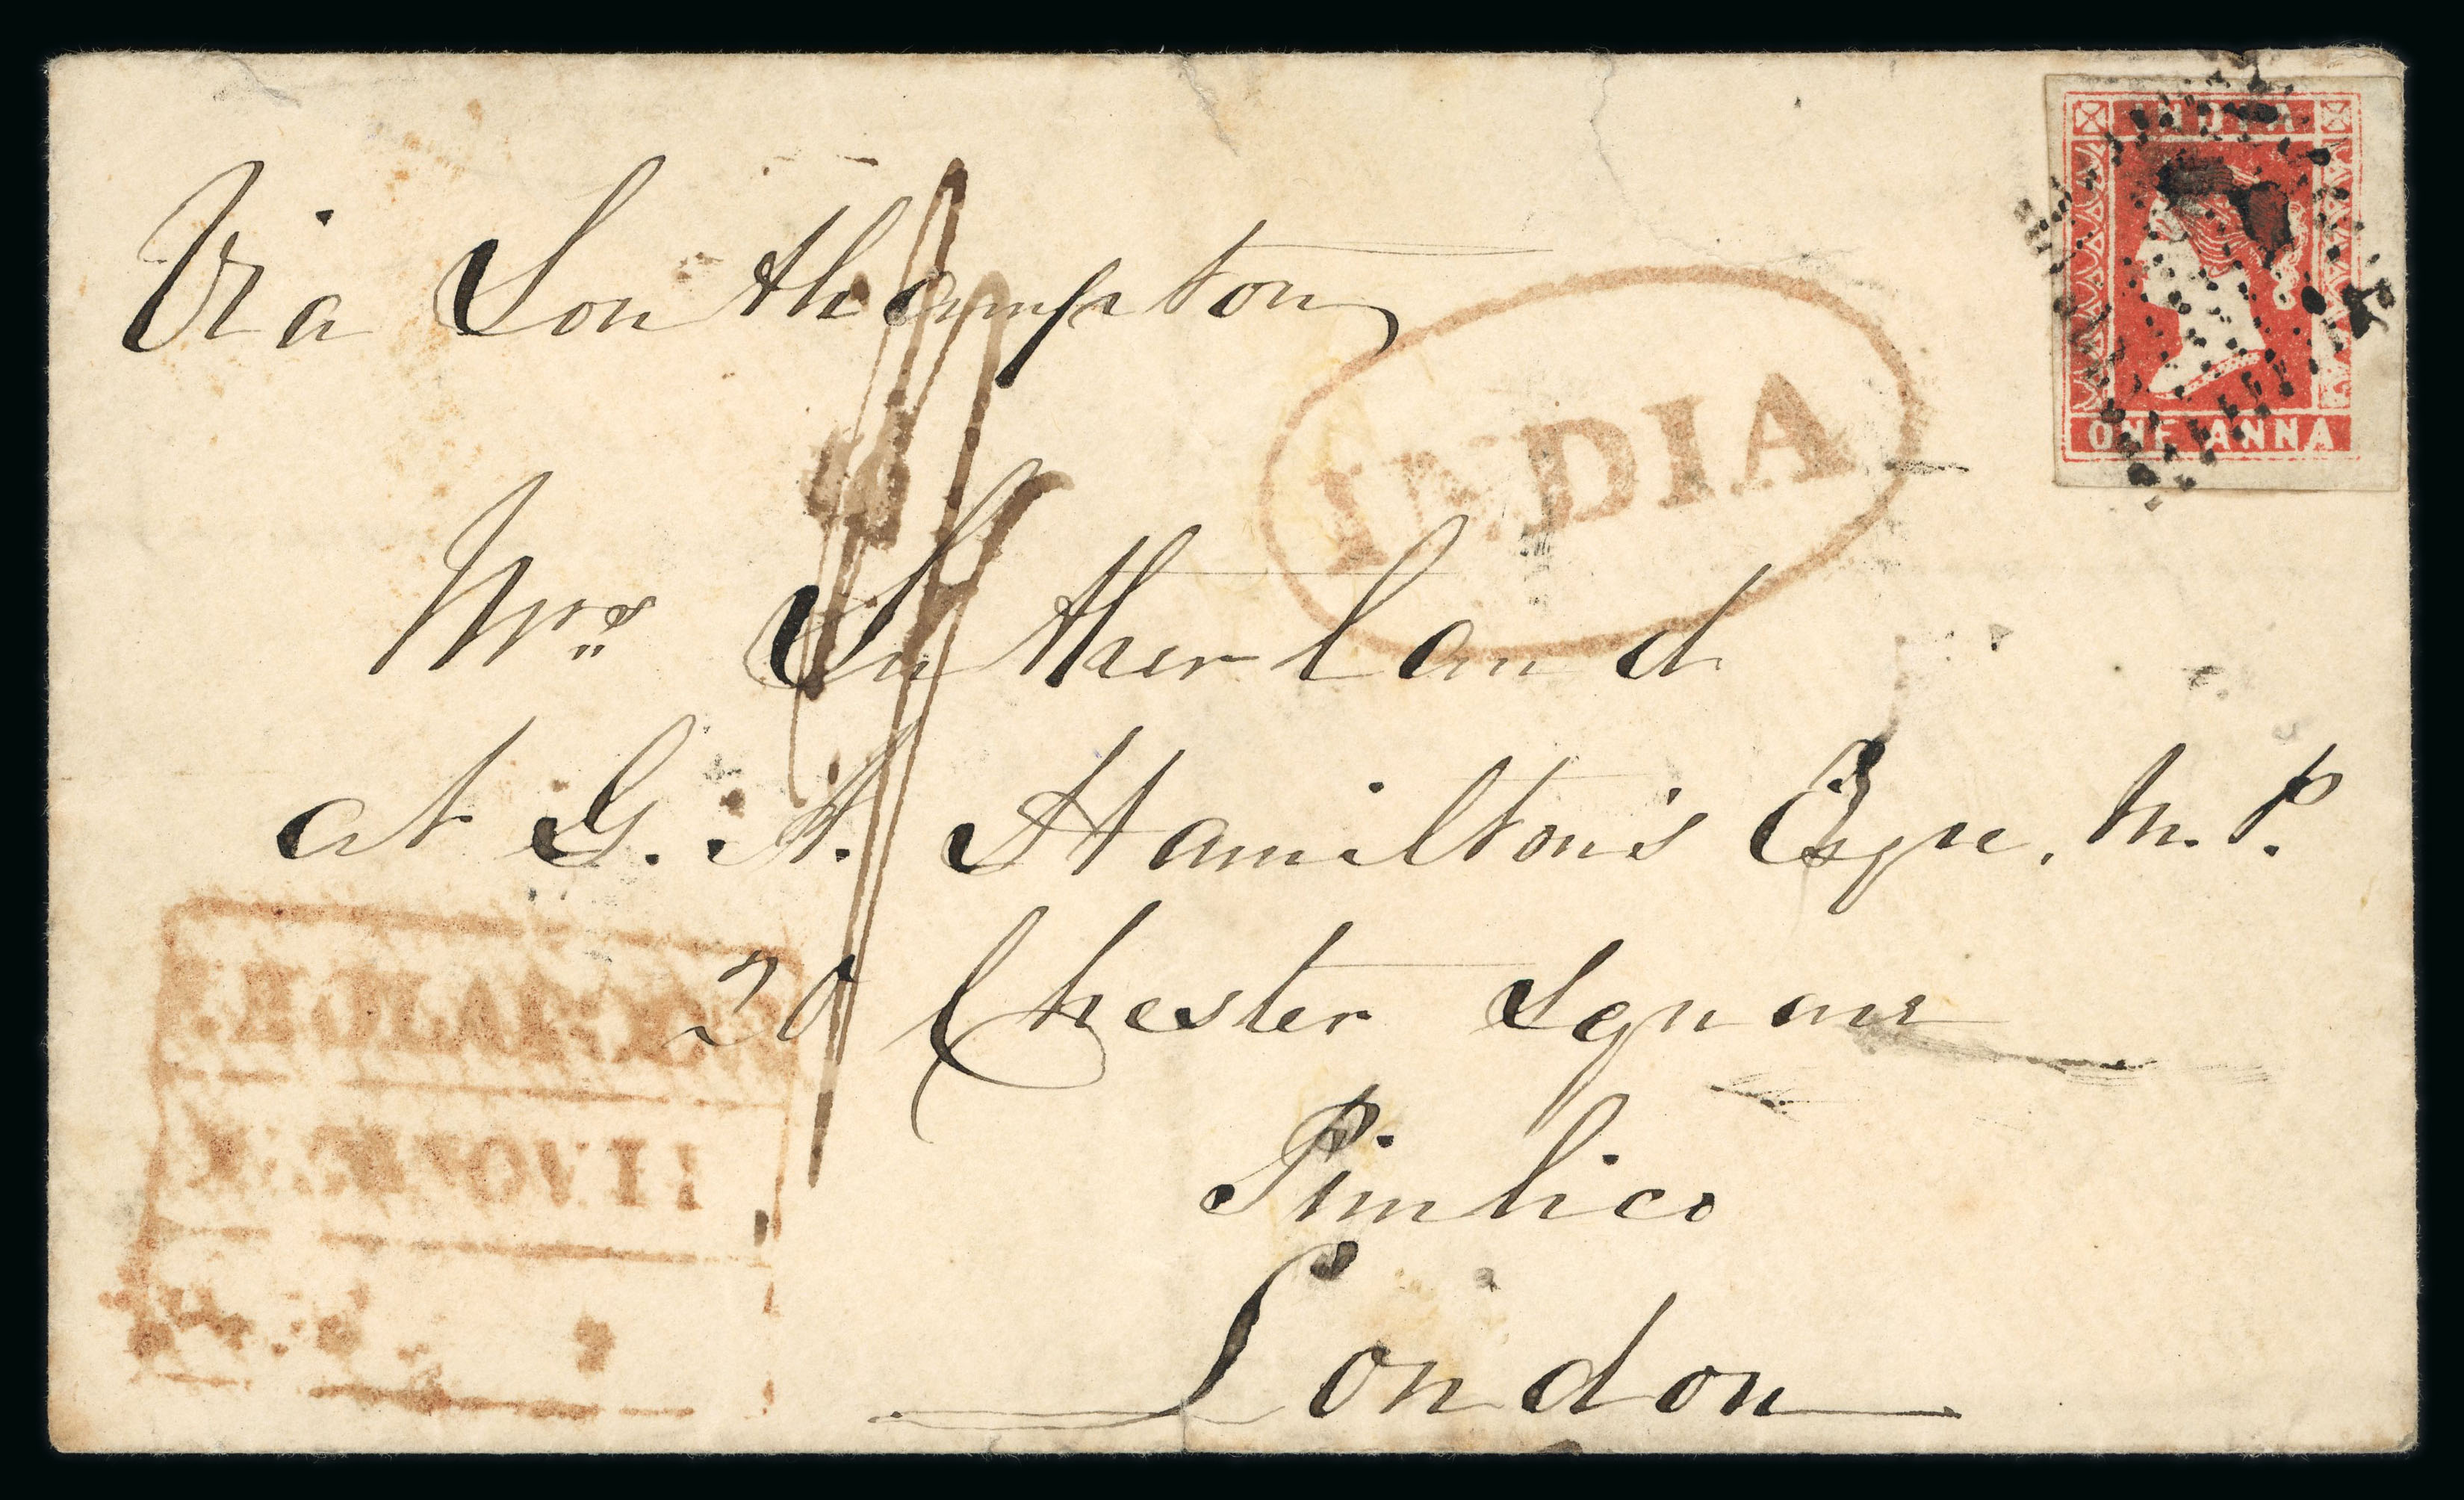 Via Southampton
INDIA
ONE ANNA
INDIA
Mrs Sutherland
at G. A. Hamilton's Esqre. M. P.
20 Chester Square
Pimlico
London